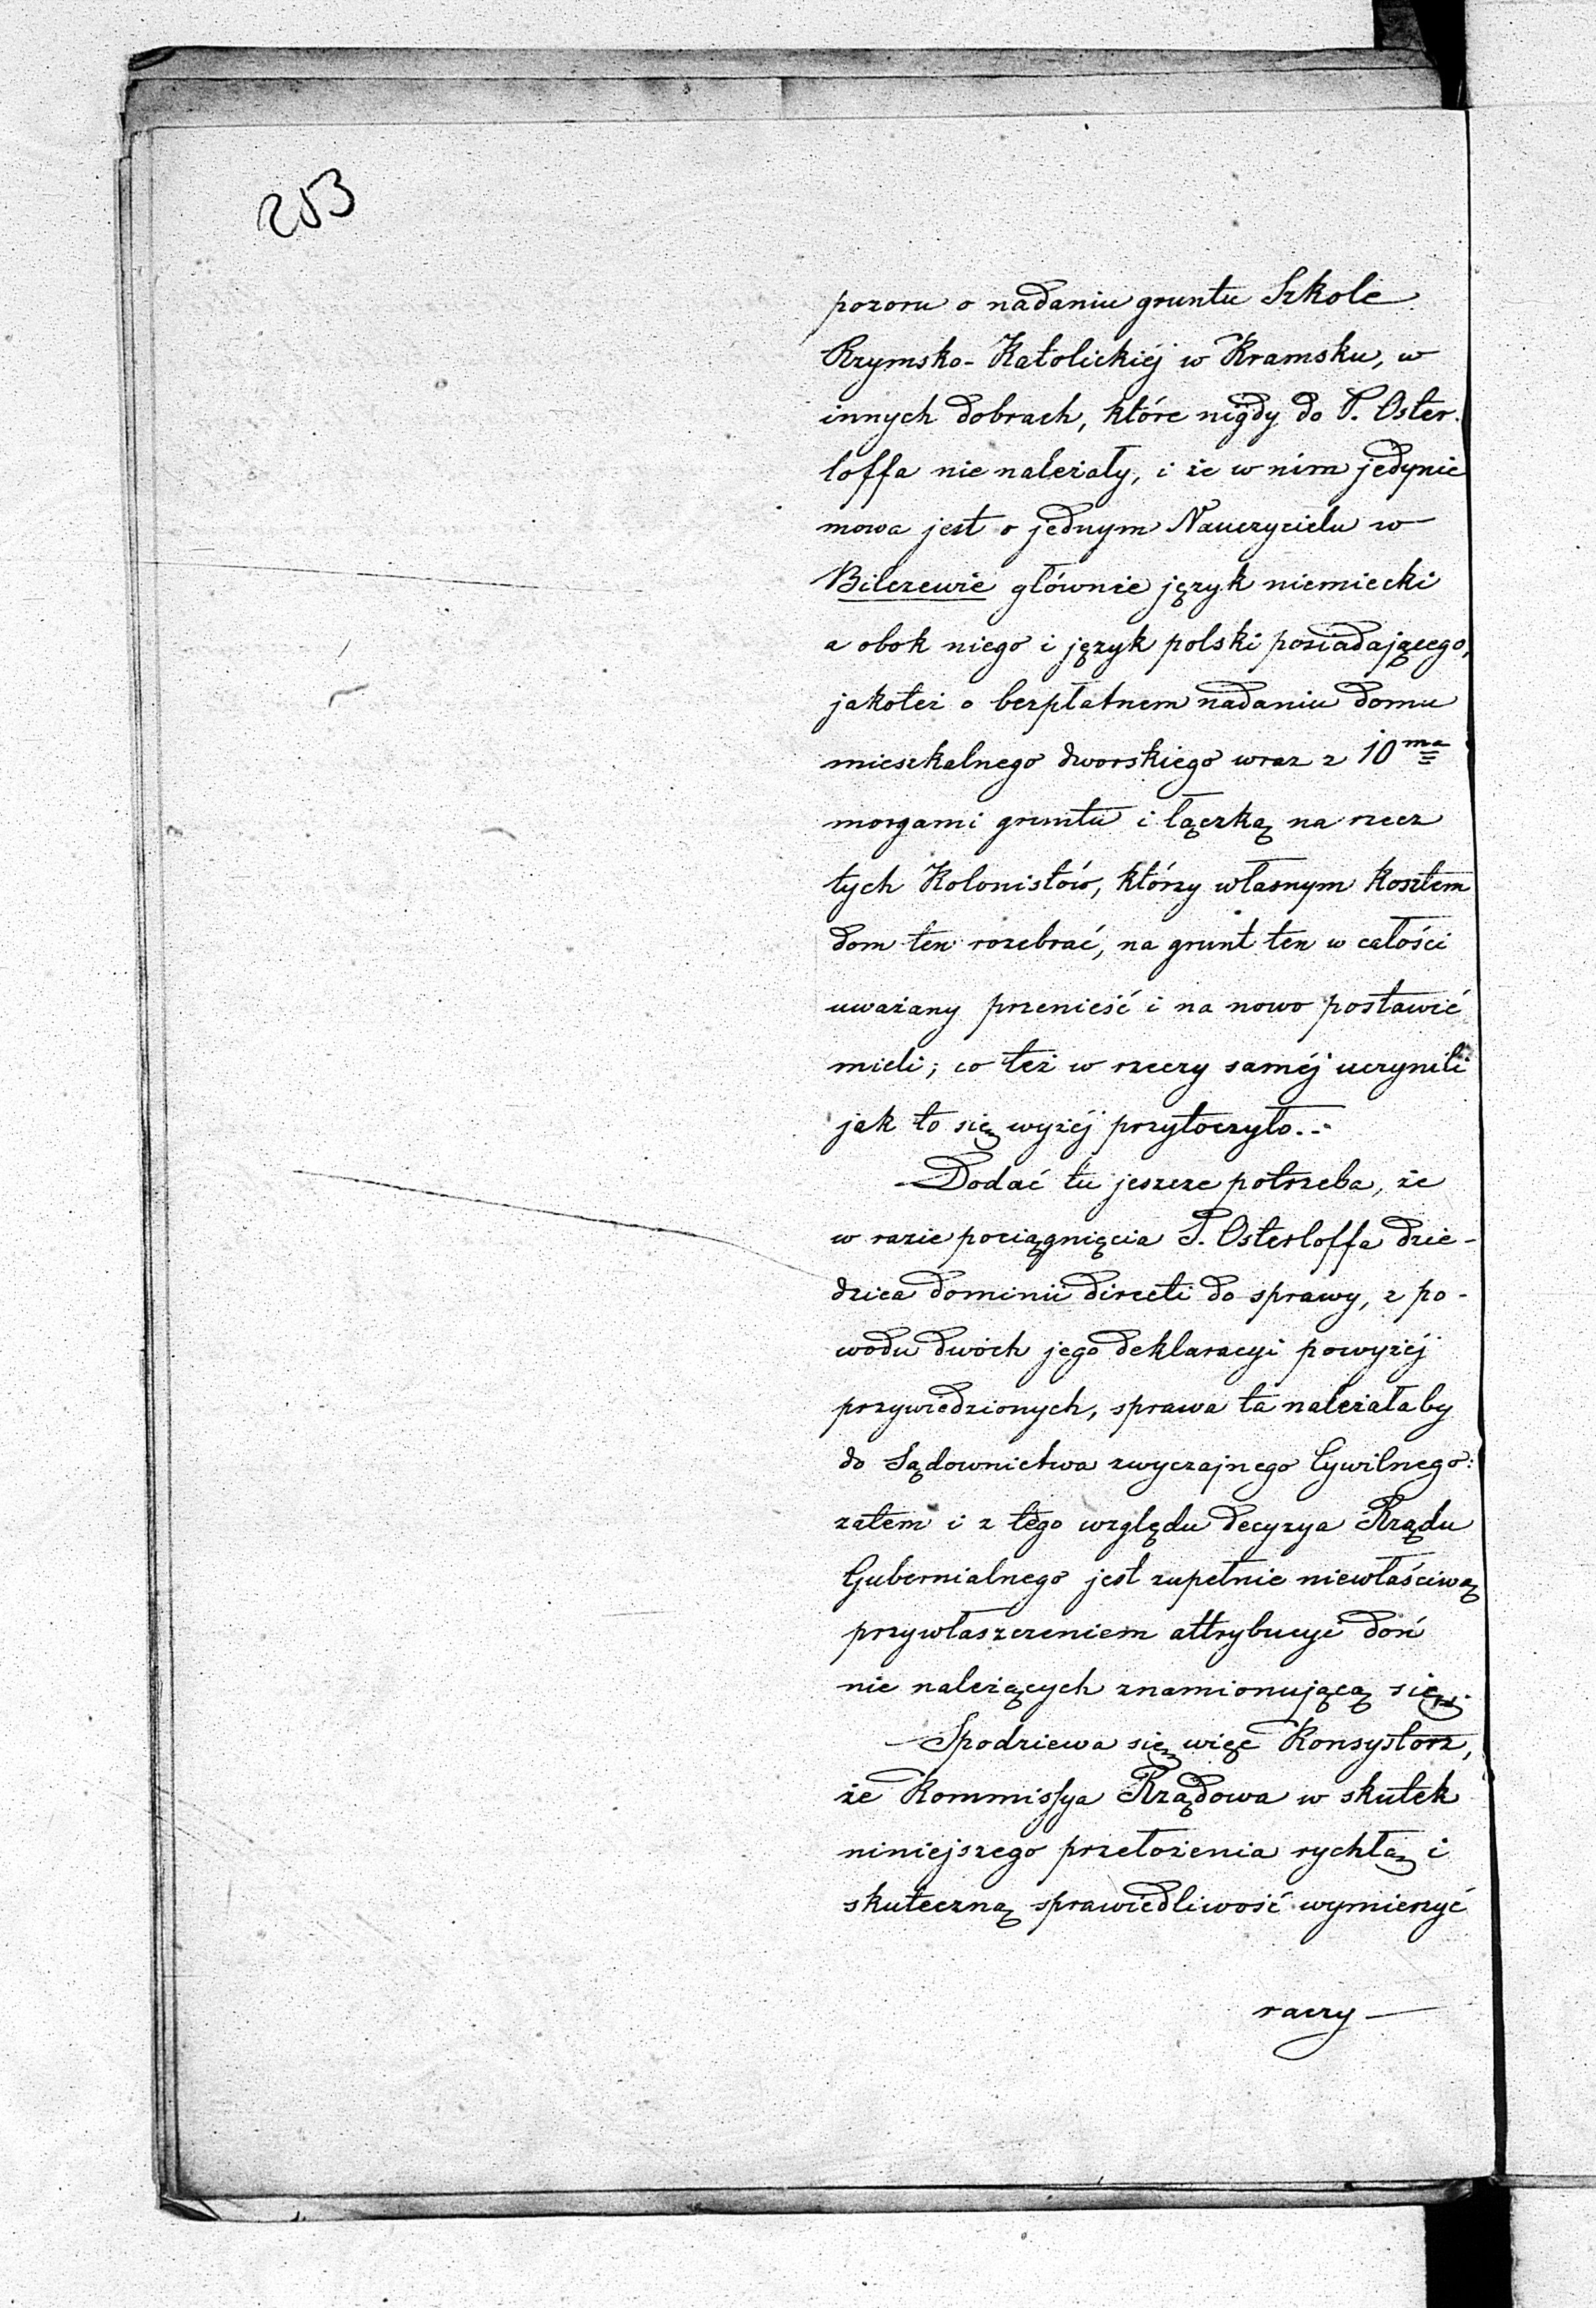 253
pozoru o nadaniu gruntu Szkole
Rzymsko-Katolickiéj w Kramsku, w
innych dobrach, które nigdy do P. Oster-
loffa nie należały, i że w nim jedynie
mowa jest o jednym Nauczycielu w
Bilczewie głównie język niemiecki
a obok niego i język polski posiadającego,
jakoteż o bezpłatnem nadaniu domu
mieszkalnego dworskiego wraz z 10ma
morgami gruntu i łączką na rzecz
tych Kolonistów, którzy własnym kosztem
dom ten rozebrać, na grunt ten w całości
uważany przenieść i na nowo postawić
mieli; co też w rzeczy saméj uczynili
jak to się wyżéj przytoczyło.-
Dodać tu jeszcze potrzeba, że
w razie pociągnięcia P. Osterloffa dzie-
dzica dominii directi do sprawy, z po-
wodu dwóch jego deklaracyi powyżéj
przywiedzionych, sprawa ta należałaby
do Sądownictwa zwyczajnego Cywilnego:
zatem i z tego względu decyzya Rządu
Gubernialnego jest zupełnie niewłaściwą
przywłaszczeniem attrybucyi doń
nie należących znamionującą się.
Spodziewa się więc Konsystorz,
że Kommissya Rządowa w skutek
niniejszego przełożenia rychłą i
skuteczną sprawiedliwość wymierzyć
raczy —